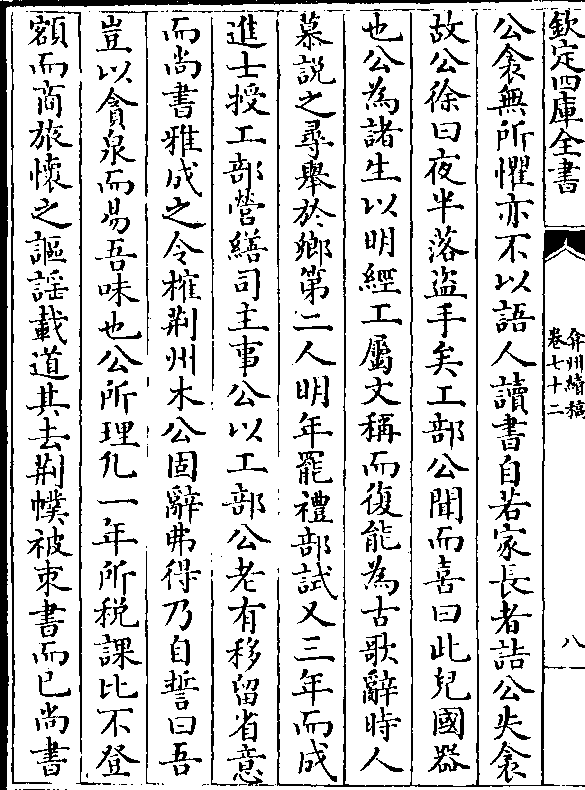 欽定四庫全書
弇州續稿
卷七十二
八
公衾無所懼亦不以語人讀書自若家長者詰公失衾
故公徐曰夜半落盜手矣工部公聞而喜曰此兒國器
也公為諸生以明經工屬文稱而復能為古歌辭時人
慕說之尋舉於鄉第二人明年罷禮部試又三年而成
進士授工部營繕司主事公以工部公老有移留省意
而尚書雅成之令榷荆州木公固辭弗得乃自誓曰吾
豈以貪泉而易吾味也公所理凢一年所税課比不登
額而商旅懷之謳謡載道其去荆幞被束書而已尚書